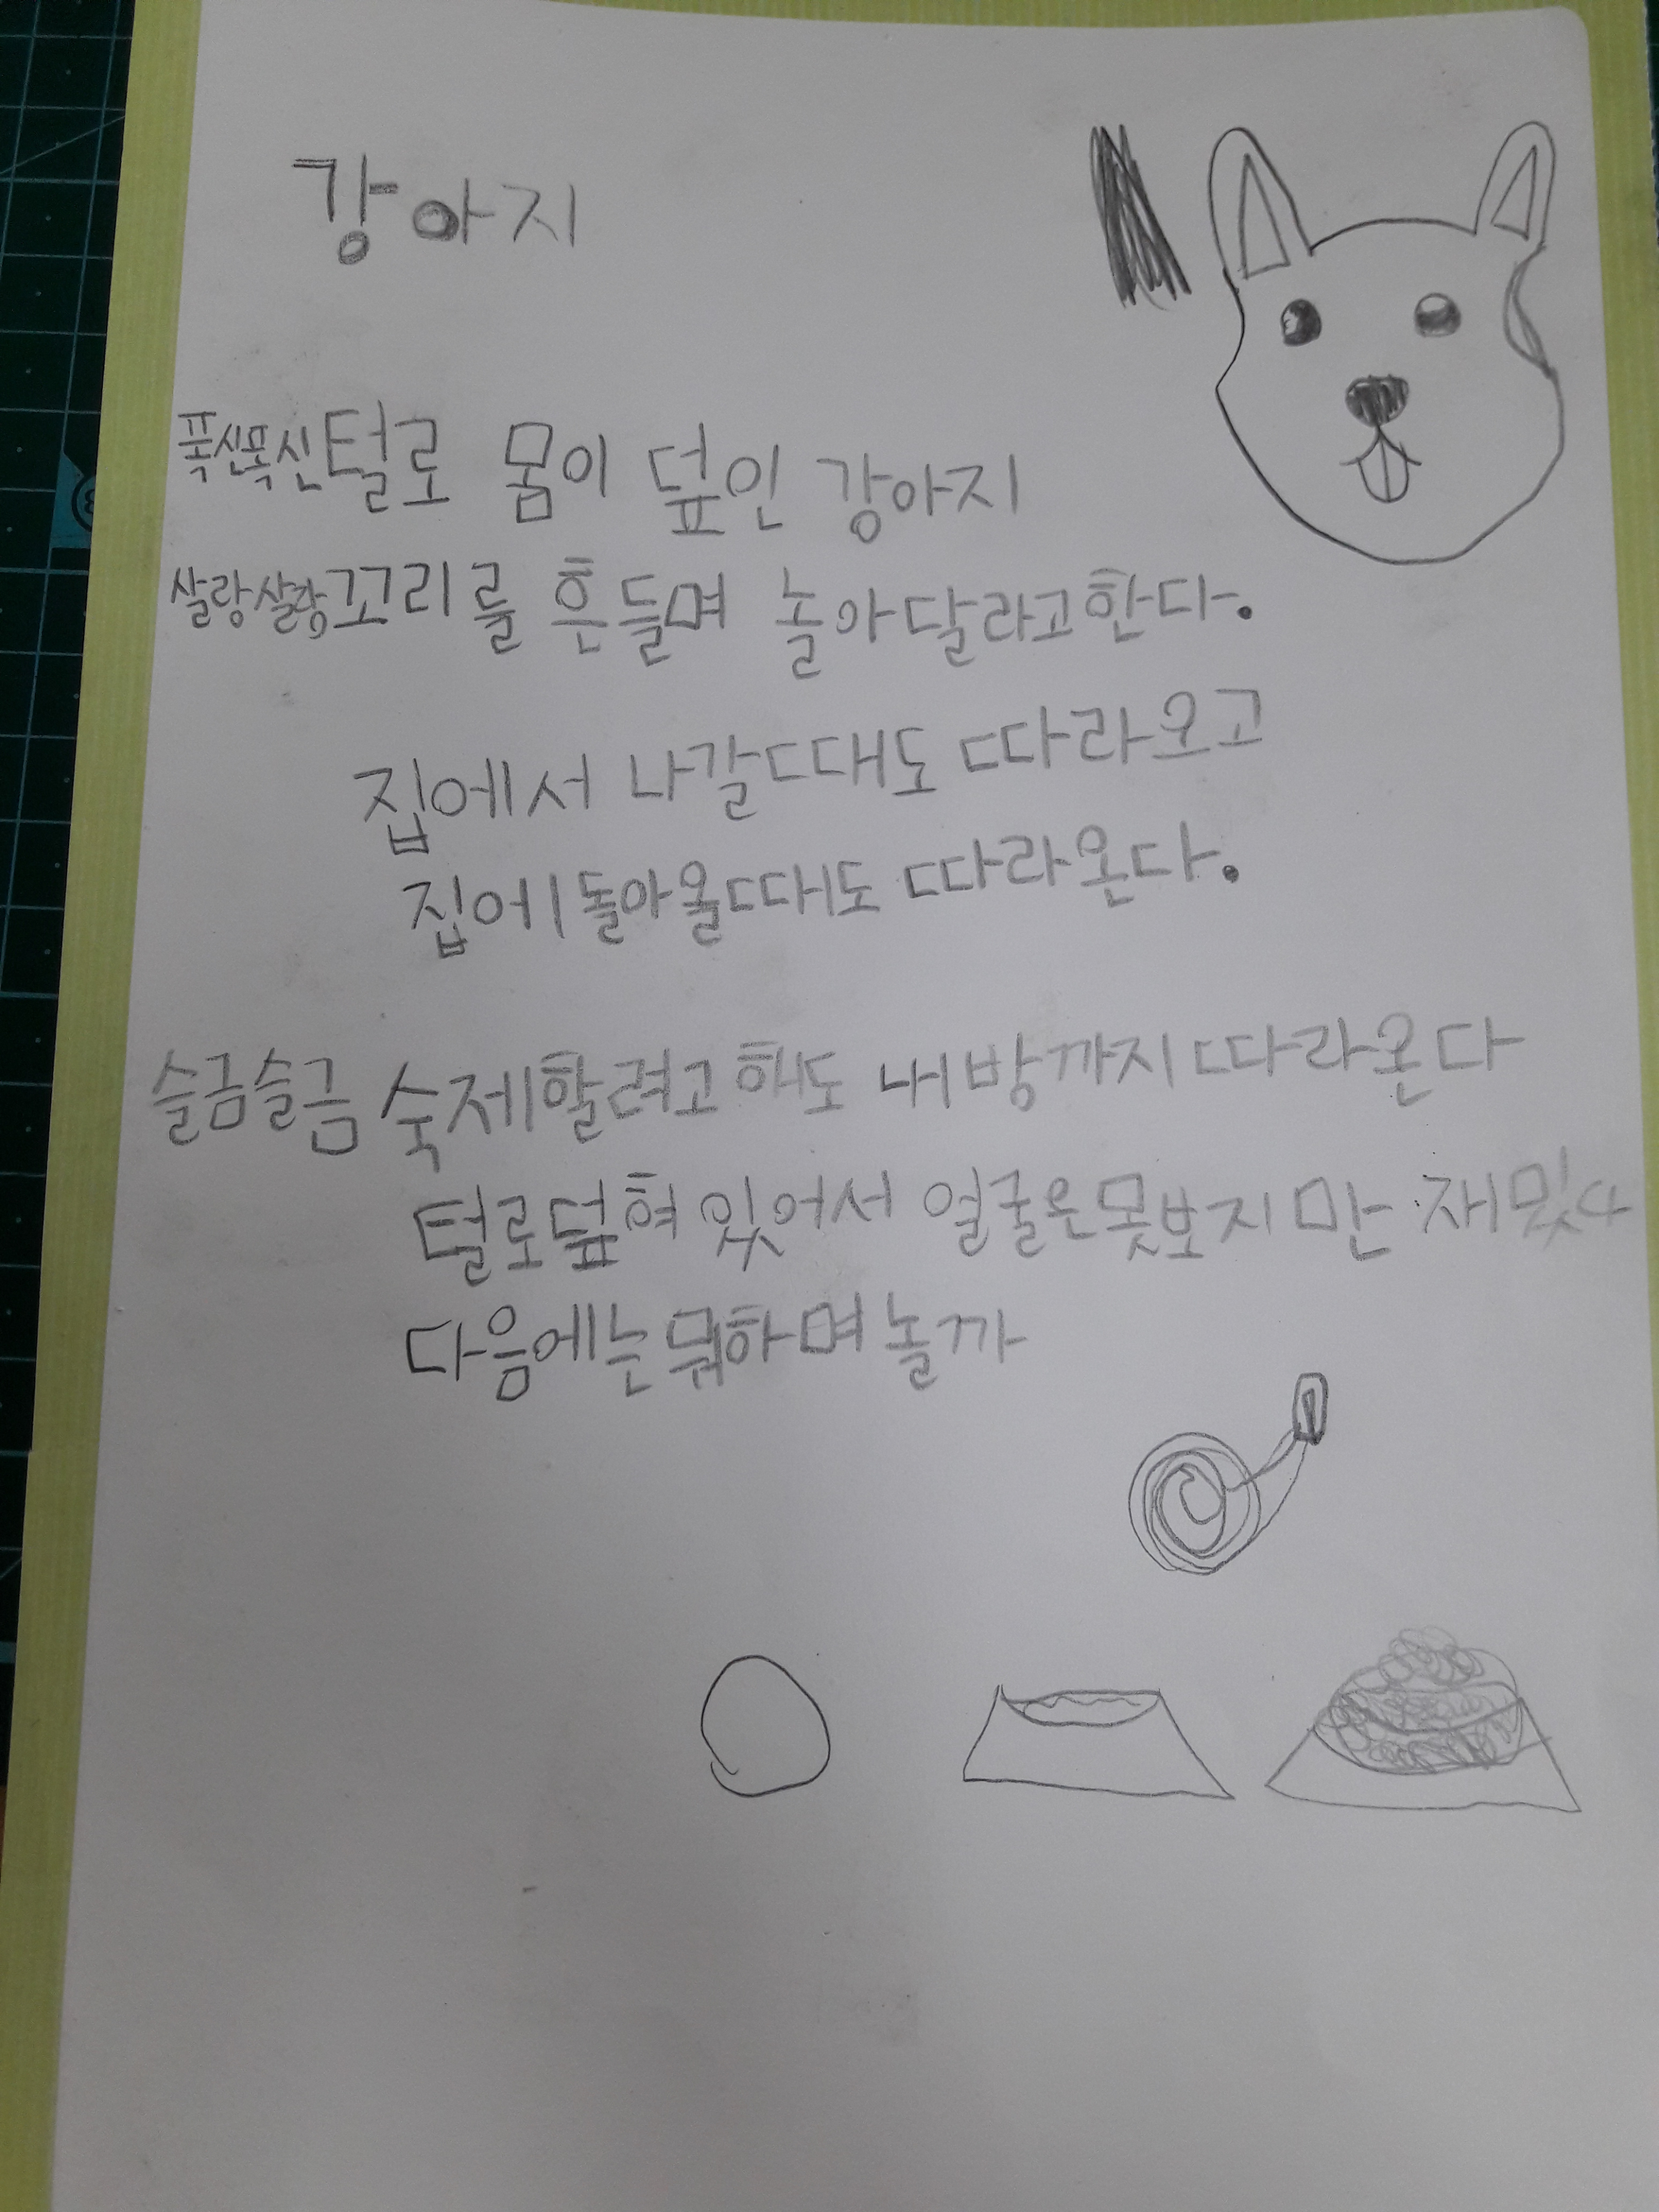 강아지
폭신폭신털로 몸이 덮인 강아지
살랑살랑꼬리를 흔들며 놀아달라고한다.
집에서 나갈때도 따라오고
집에돌아올때도 따라온다.
슬금슬금 숙제할려고해도 내방까지따라온다
털로덮혀있어서 얼굴은못보지만 재밌다
다음에는뭐하며놀까